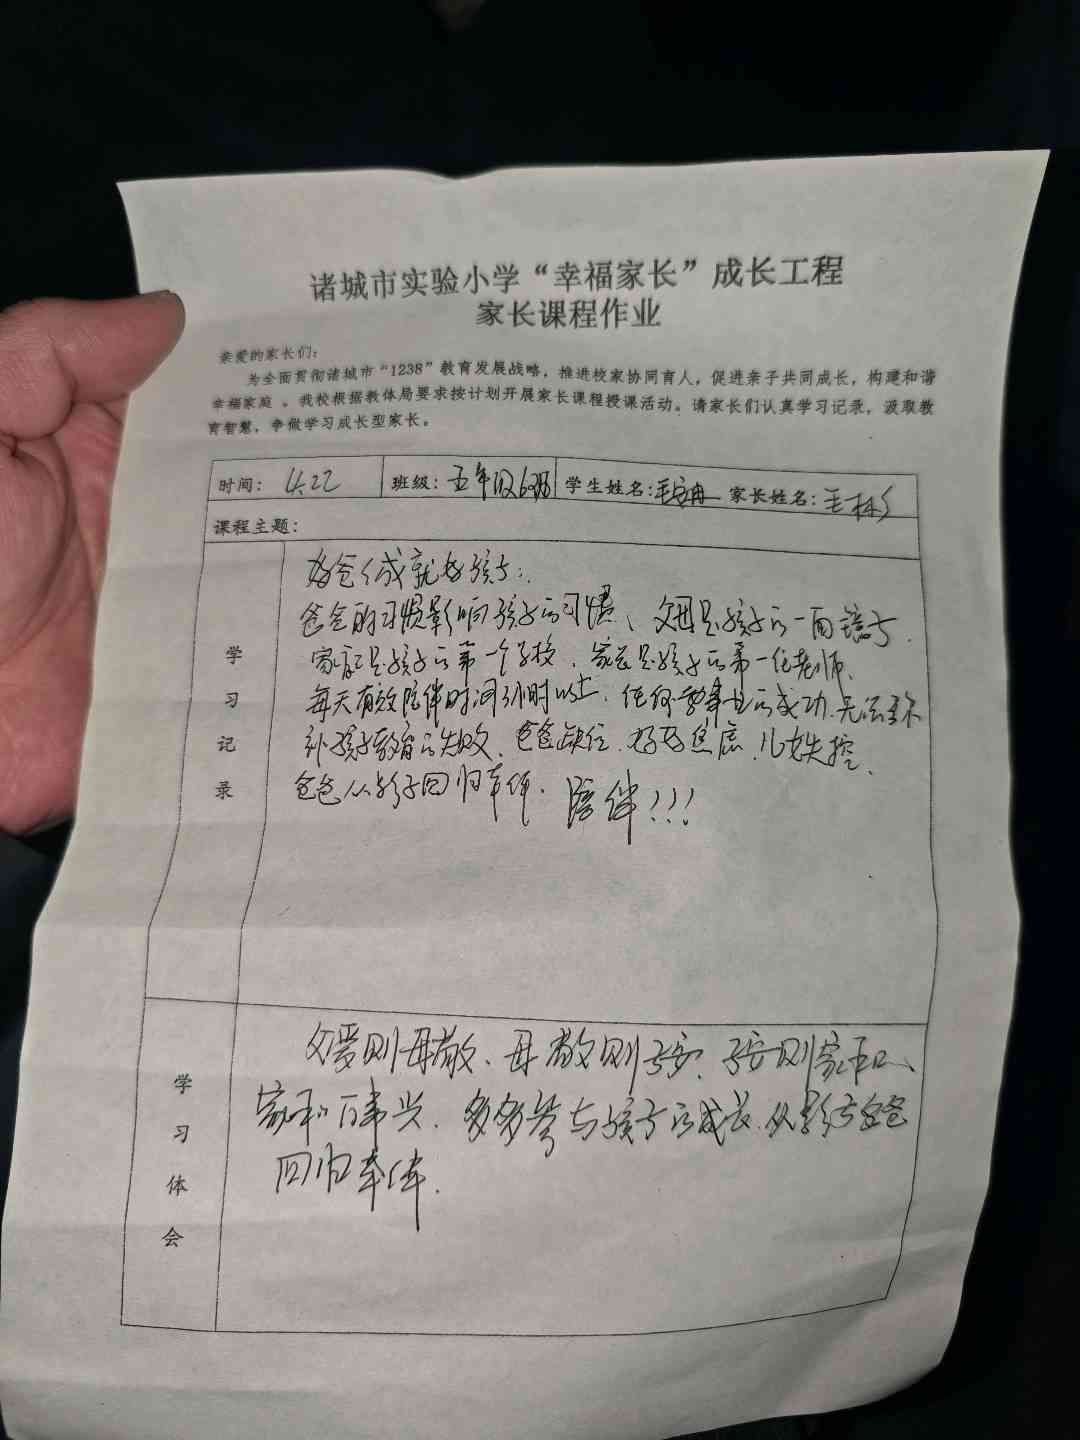 诸城市实验小学“幸福家长”成长工程
家长课程作业
亲爱的家长们：
为全面贯彻诸城市“1238”教育发展战略，推进校家协同育人，促进亲子共同成长，构建和谐
幸福家庭 。我校根据教体局要求按计划开展家长课程授课活动。请家长们认真学习记录，汲取教
育智慧，争做学习成长型家长。
时间： 4.22 班级：五年级6班 学生姓名： 家长姓名：
课程主题：
学习记录
好爸爸成就好孩子：
爸爸的习惯影响孩子的习惯、父母是孩子的一面镜子.
家庭是孩子的第一个学校，家长是孩子的第一任老师.
每天有效陪伴时间 小时以上，任何事业的成功.无法弥
补孩子教育的失败，爸爸缺位，妈妈焦虑，儿女失控.
爸爸从影子回归本体. 陪伴！！！
学习体会
父爱则母敬、母敬则子安、子安则家和、
家和百事兴，多多参与孩子的成长.从影子爸爸
回归本体.